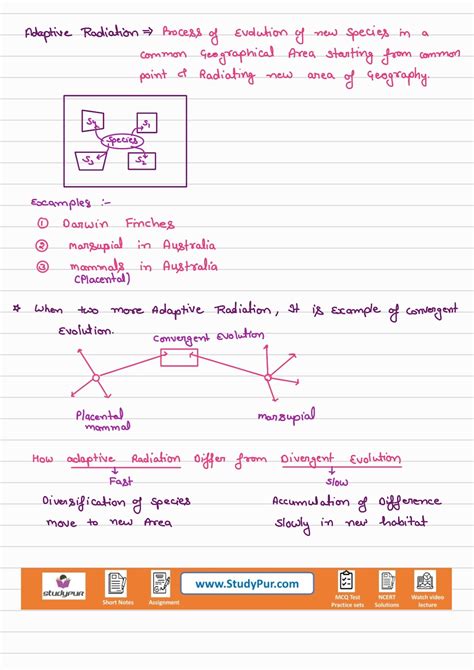 Adaptive Radiation ⇒ Process of Evolution of new species in a
common Geographical Area starting from common
point & Radiating new area of Geography.
S4
S1
Species
S3
S2
Examples :-
① Darwin Finches
② marsupial in Australia
③ mammals in Australia
(Placental)
* When two more Adaptive Radiation, It is Example of convergent
Evolution.
Convergent Evolution
Placental
mammal
marsupial
How adaptive Radiation Differ from Divergent Evolution
Fast
slow
Diversification of species
move to new Area
Accumulation of Difference
Slowly in new habitat
studypur
Short Notes
Assignment
www.StudyPur.com
MCQ Test
Practice sets
NCERT
Solutions
Watch video
lecture